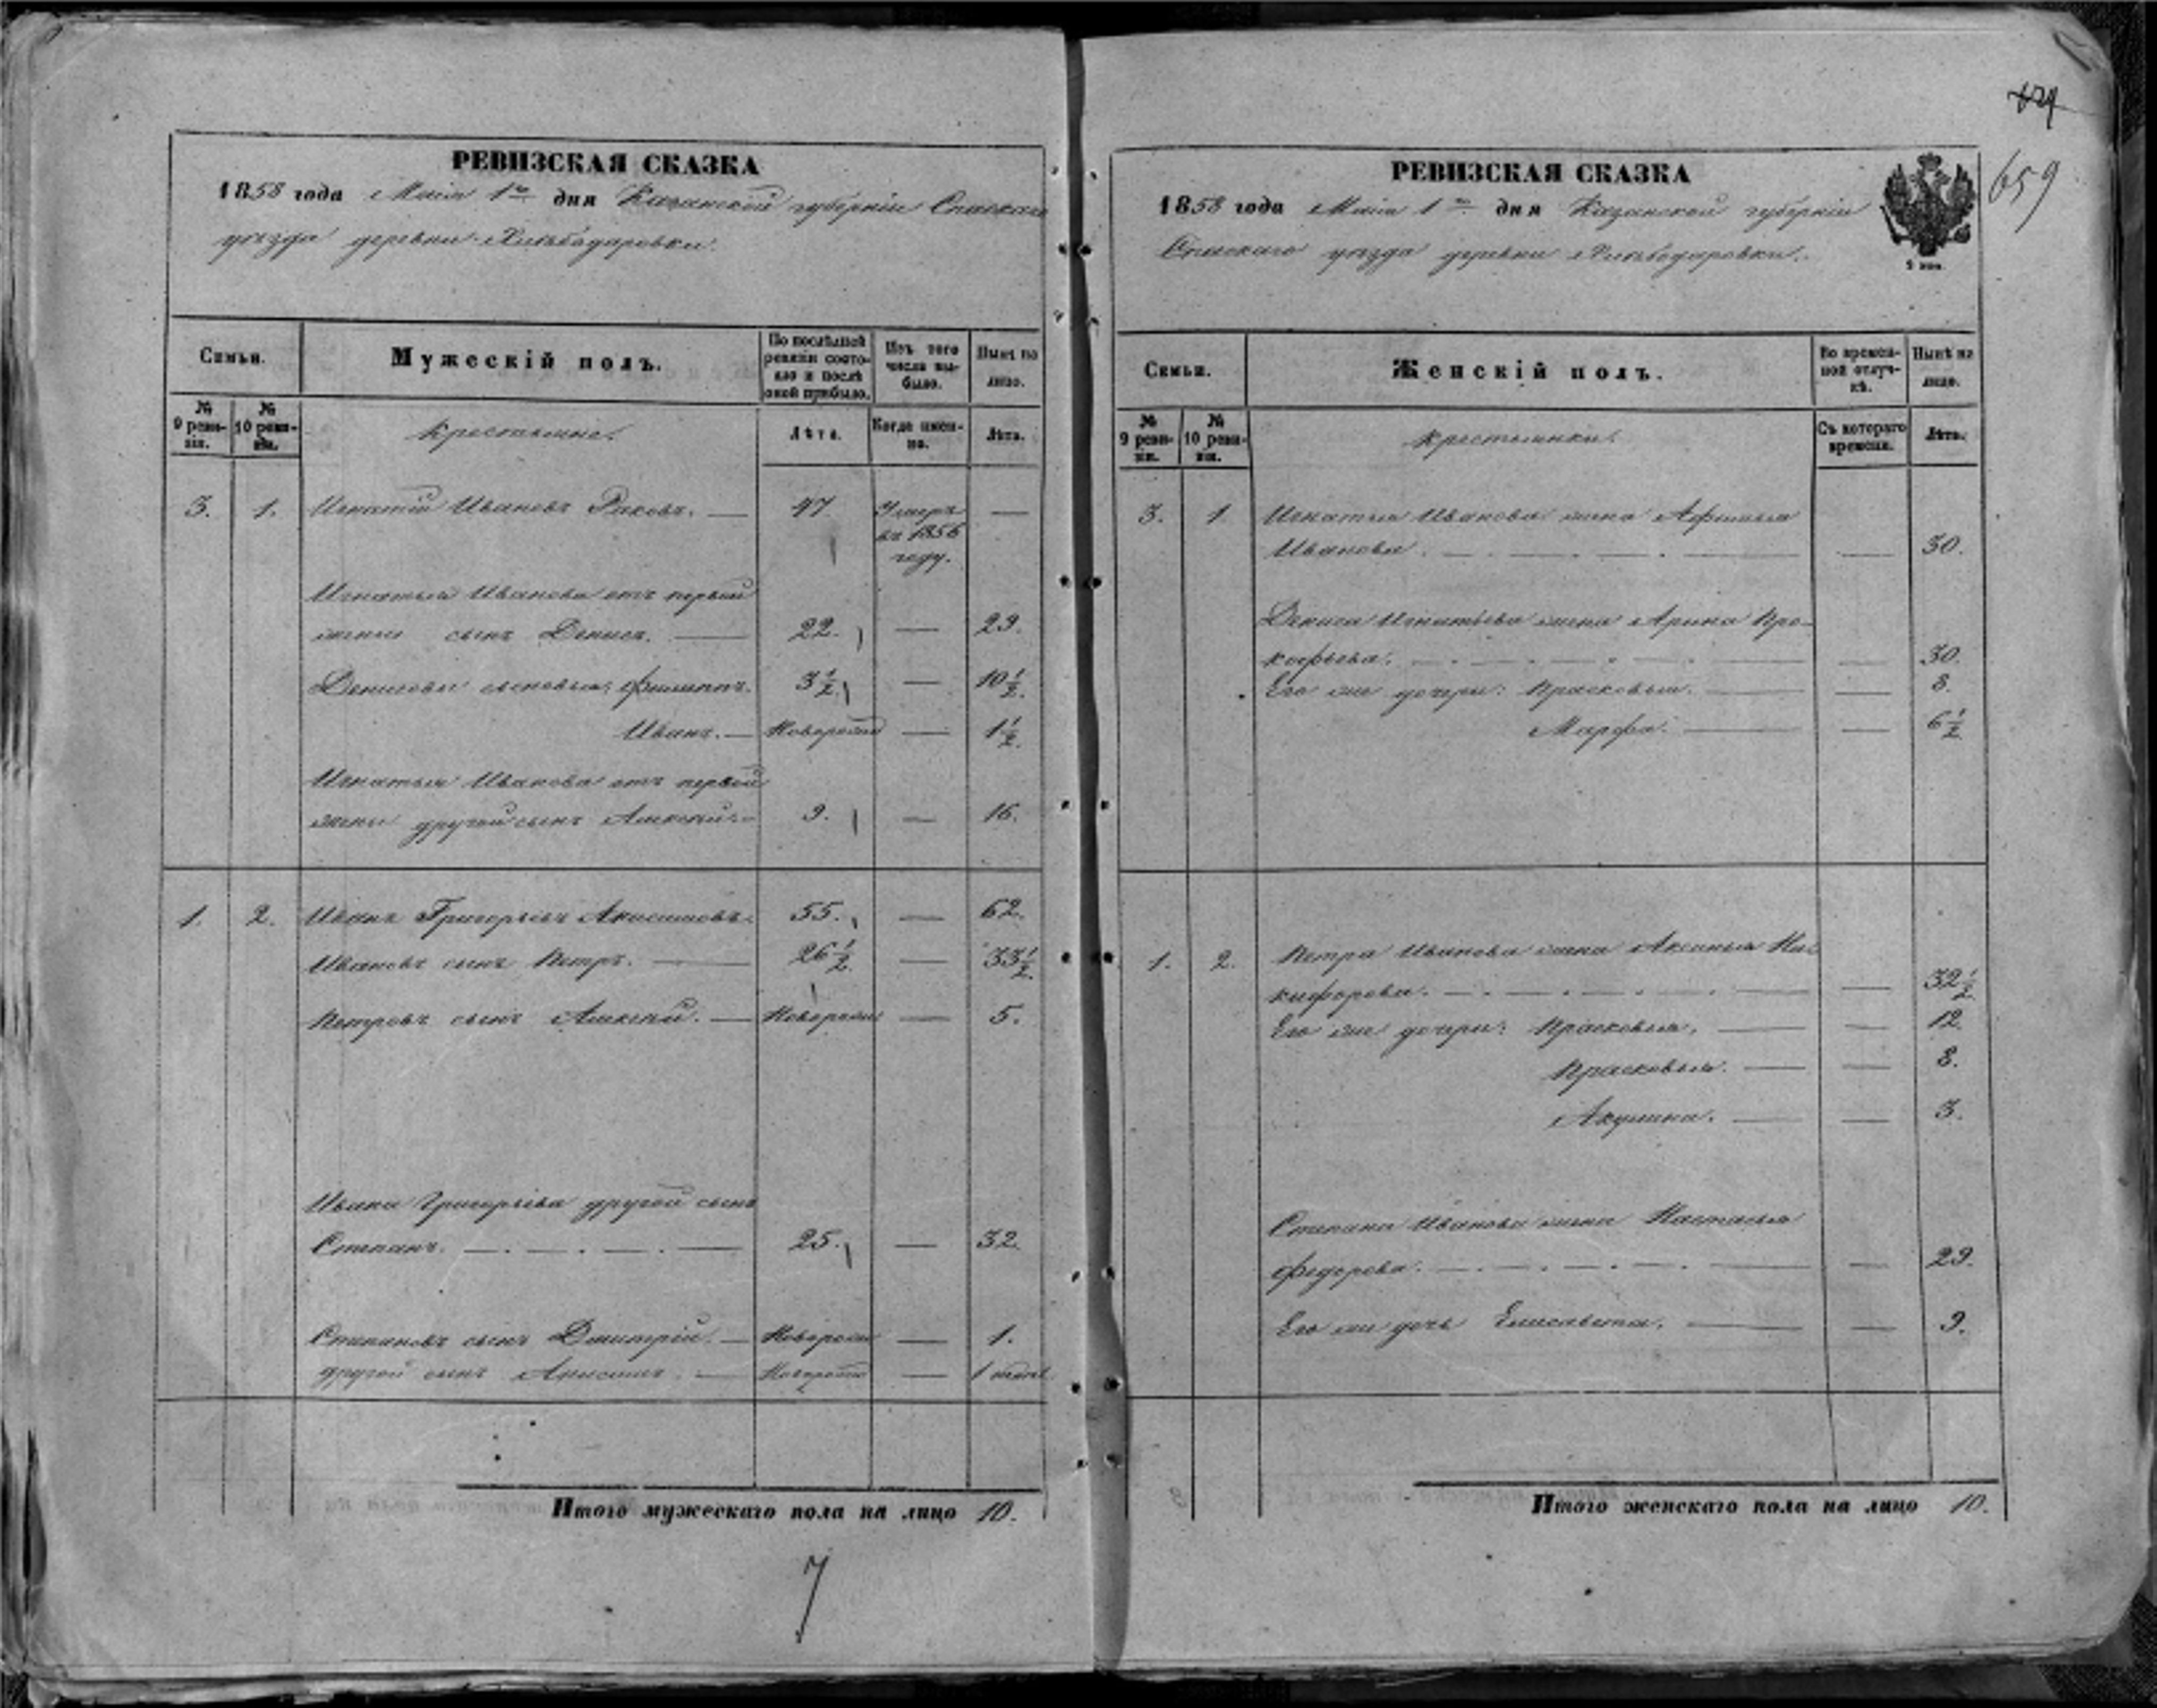 659
РЕВИЗСКАЯ СКАЗКА
1858 года Маія 1го дня Казанской губерніи Спаскаго
уѣзда деревни Хлѣбодаровки.
Семьи.
Мужескій полъ.
По послѣдней ревизіи состояло и послѣ оной прибыло.
Изъ того числа выбыло.
Нынѣ на лицо.
№ 9 ревизіи.
№ 10 ревизіи.
Крестьяне.
Лѣта.
Когда именно.
Лѣта.
3. 1. Игнатій Ивановъ Раковъ. — 47 Умеръ —
въ 1856
году.
Игнатья Иванова отъ первой
жены сынъ Денисъ. — 22. — 29.
Денисовы сыновья: Филиппъ. 3½ — 10½.
Иванъ. — Новорож — 1½.
Игнатья Иванова отъ первой
жены другой сынъ Алексѣй. — 9. — 16.
1. 2. Иванъ Григорьевъ Анисимовъ. 55. — 62.
Ивановъ сынъ Петръ. — 26½. — 33½.
Петровъ сынъ Алексѣй. — Новорож — 5.
Ивана Григорьева другой сынъ
Степанъ. — . — . — . — 25. — 32.
Степановъ сынъ Дмитрій. — Новорож — 1.
другой сынъ Анисимъ. — Новорож — 1
Итого мужескаго пола на лицо 10.
7
РЕВИЗСКАЯ СКАЗКА
1858 года Маія 1го дня Казанской губерніи
Спаскаго уѣзда деревни Хлѣбодаровки.
2 коп.
Семьи.
Женскій полъ.
Во временной отлучкѣ.
Нынѣ на лицо.
№ 9 ревизіи.
№ 10 ревизіи.
Крестьянки.
Съ котораго времени.
Лѣта.
3. 1. Игнатья Иванова жена Афимья
Иванова. — . — . — . — — 30.
Дениса Игнатьева жена Арина Про-
кофьева. — . — . — . — — 30.
Его же дочери: Прасковья. — — 8.
Марфа. — — 6½
1. 2. Петра Иванова жена Аксинья Ни-
кифорова. — . — . — . — — 32½
Его же дочери: Прасковья, — — 12.
Прасковья. — — 8.
Акулина. — — 3.
Степана Иванова жена Настасья
Федорова. — . — . — . — — 29.
Его же дочь Елисавета. — — 9.
Итого женскаго пола на лицо 10.